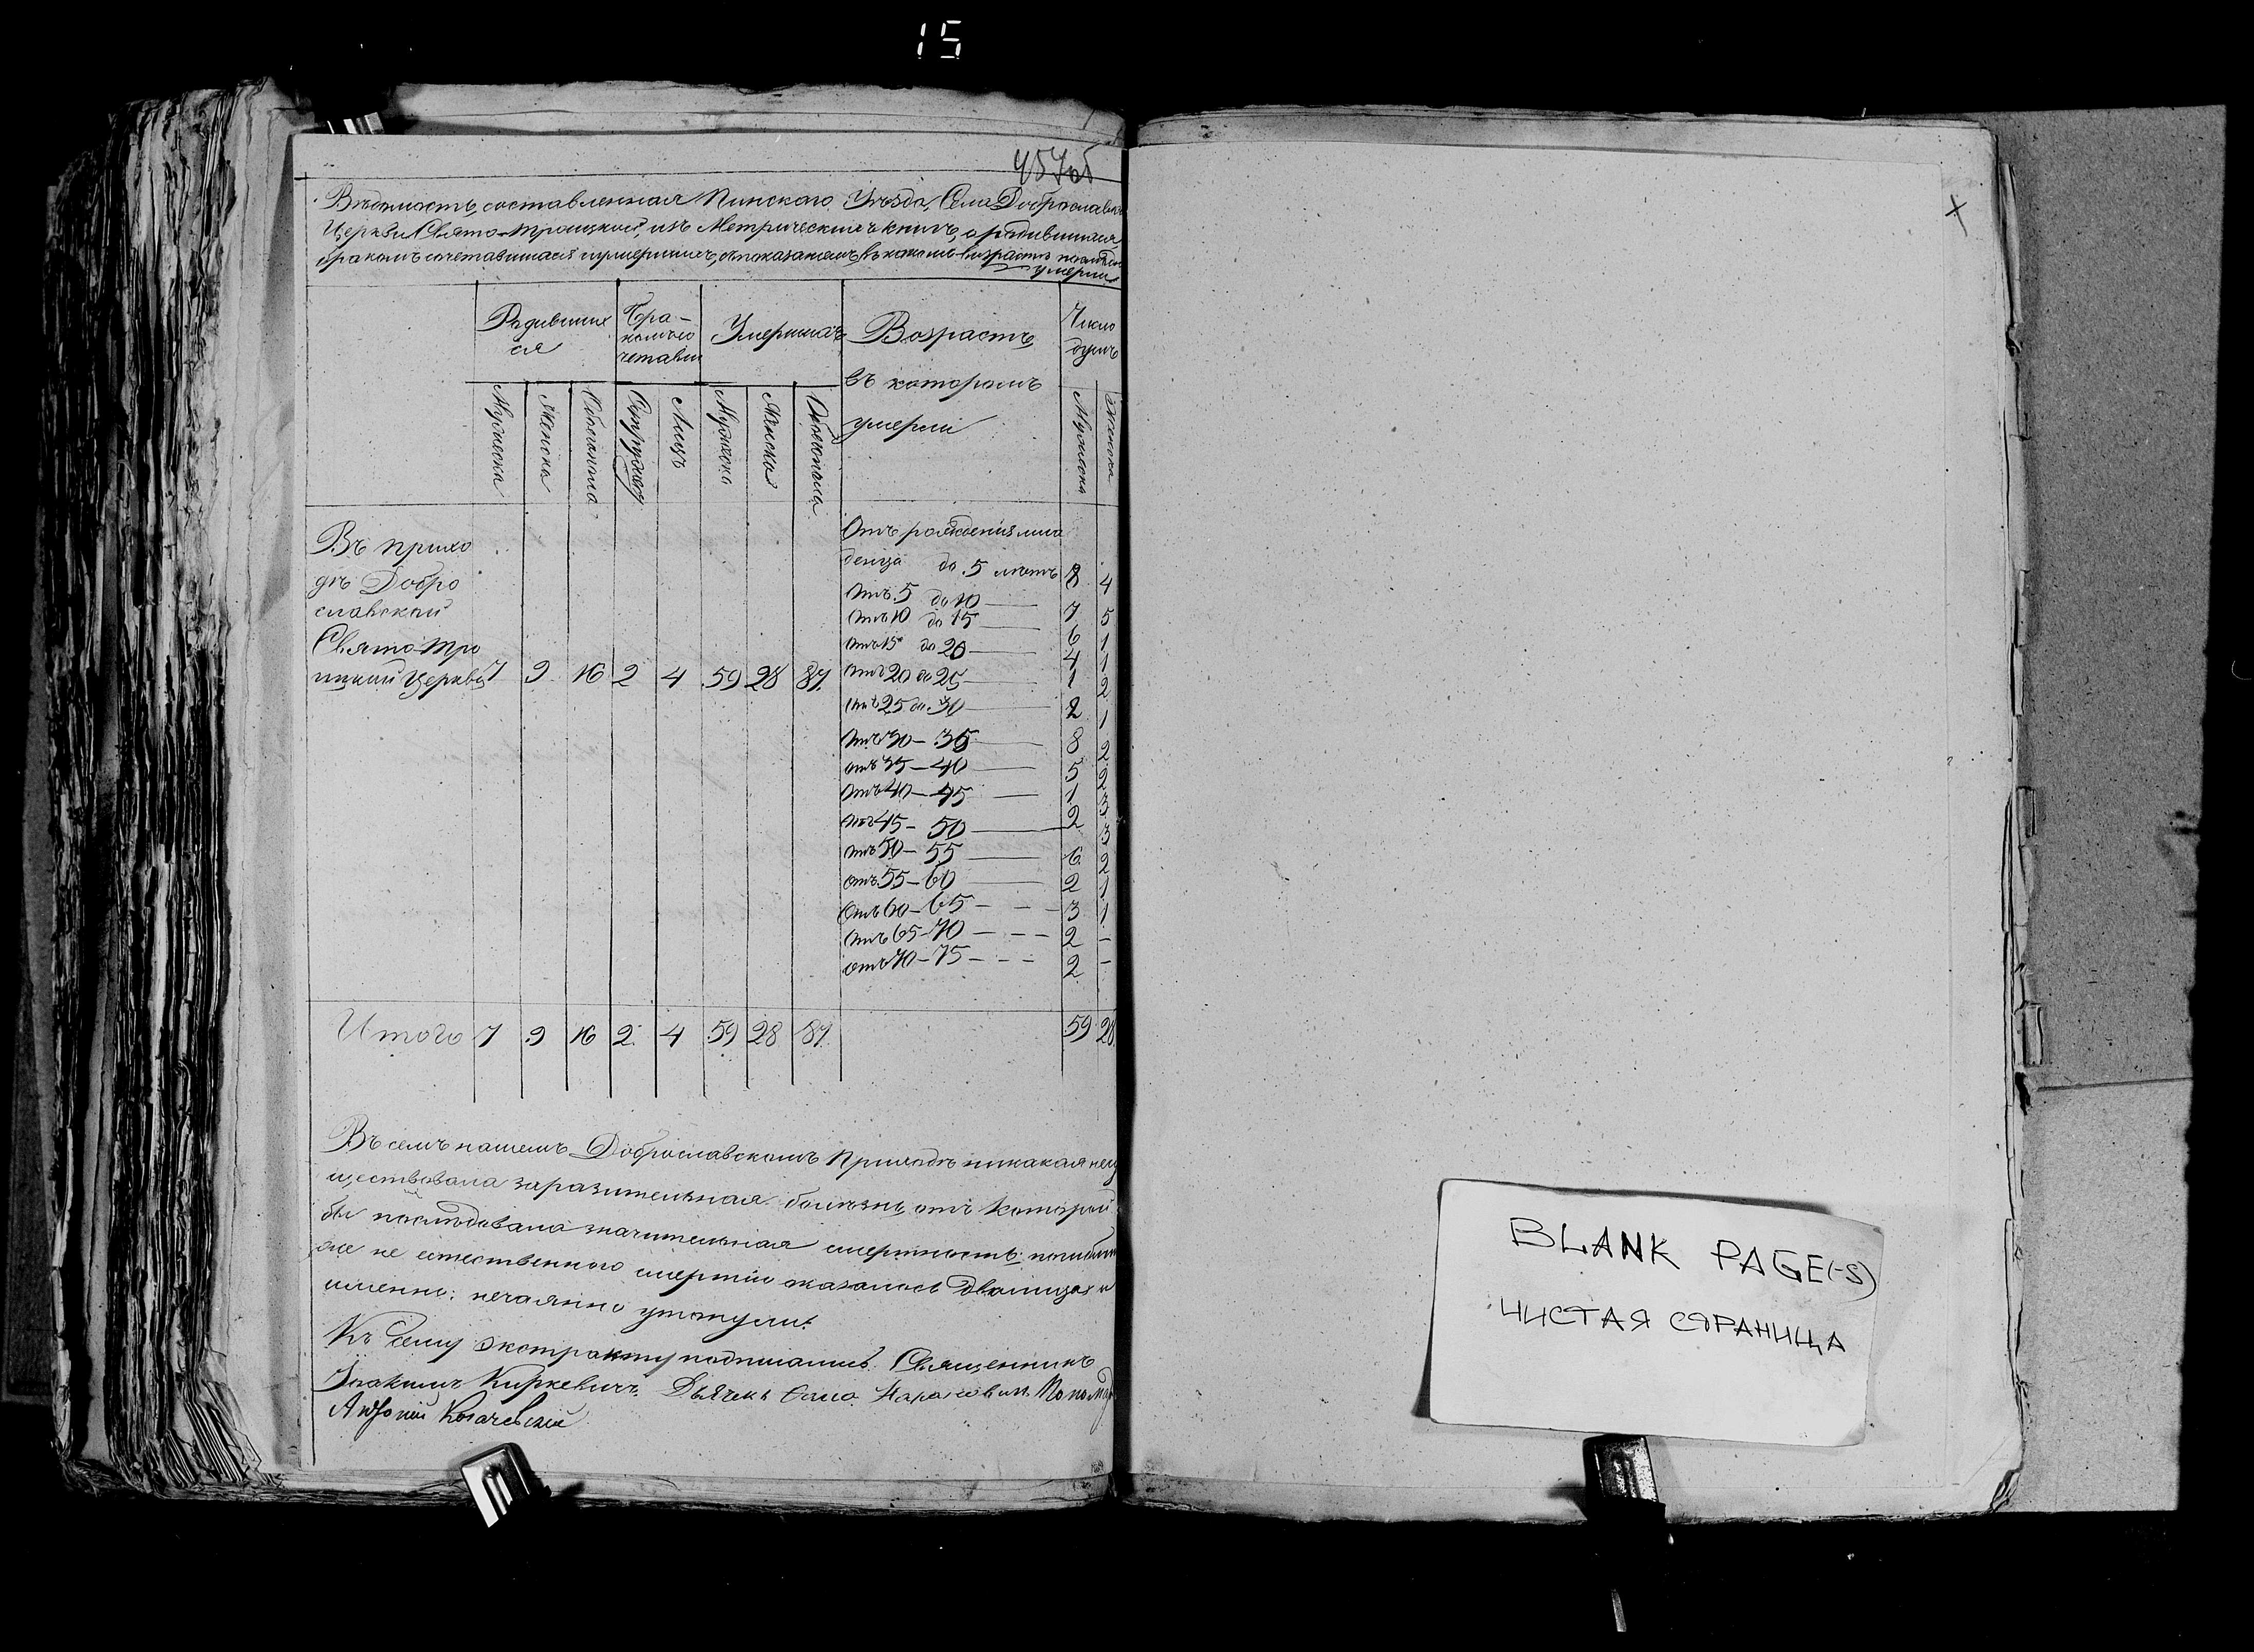 15
457об
Ведомость, составленная Пинскаго Уезда, Села Доброславки
Церкви Свято-Троицкой, изъ Метрическихъ книгъ, о родившихся,
бракомъ сочетавшихся и умершихъ, съ показаніемъ въ какомъ возрасте последніе
умерли
Родивших
ся
Бра-
комъ со
четавши
Умершихъ
Возрастъ,
въ которомъ
умерли
Число
душъ
Мужеска
Женска
Обоегопола
Супружес
Лицъ
Мужеска
Женска
Обоегопола
Мужеска
Женска
Въ прихо
де Добро
славской
Свято-Тро
ицкой Церкви 7 9 16 2 4 59 28 87
Отъ рожденія мла
денца до 5 летъ 8 4
Отъ 5 до 10 — 7 5
Отъ 10 до 15 — 6 1
Отъ 15 до 20 — 4 1
Отъ 20 до 25 — 1 2
Отъ 25 до 30 — 2 1
Отъ 30 — 35 — 8 2
отъ 35 — 40 — 5 2
Отъ 40 — 45 — 1 3
Отъ 45 — 50 — 2 3
Отъ 50 — 55 — 6 2
отъ 55 — 60 — 2 1
Отъ 60 — 65 — — — 3 1
Отъ 65 — 70 — — — 2 —
отъ 70 — 75 — — — 2 —
Итого 7 9 16 2 4 59 28 87 59 28
Въ семъ нашемъ Доброславскомъ Приходе никакая несу
ществовала заразительная болезнь, отъ которой
бы последовала значительная смертность; погибши
же не естественною смертію оказалось два лица и
именно: нечаянно утонули.
Къ сему экстракту подписались: Священникъ
Іоакимъ Киркевичъ. Дьячекъ Пономарь
Антоній
BLANK PAGE(-S)
ЧИСТАЯ СТРАНИЦА